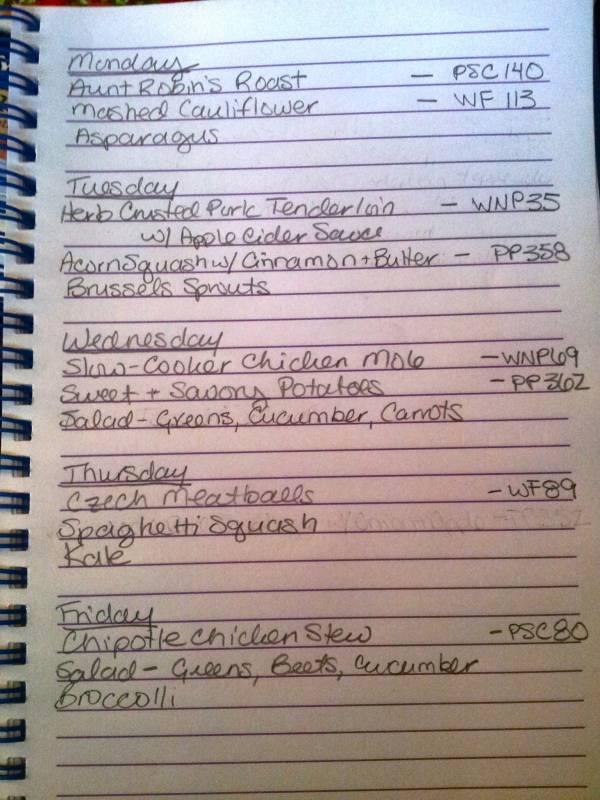 Monday
Aunt Robin's Roast — PSC 140
Mashed Cauliflower — WF 113
Asparagus
Tuesday
Herb Crusted Pork Tenderloin — WNP35
w/ Apple Cider Sauce
Acorn Squash w/ Cinnamon + Butter — PP358
Brussels Sprouts
Wednesday
Slow-Cooker Chicken Mole — WNP69
Sweet + Savory Potatoes — PP362
Salad - Greens, Cucumber, Carrots
Thursday
Czech Meatballs - WF89
Spaghetti Squash
Kale
Friday
Chipotle Chicken Stew - PSC80
Salad - Greens, Beets, Cucumber
Broccolli